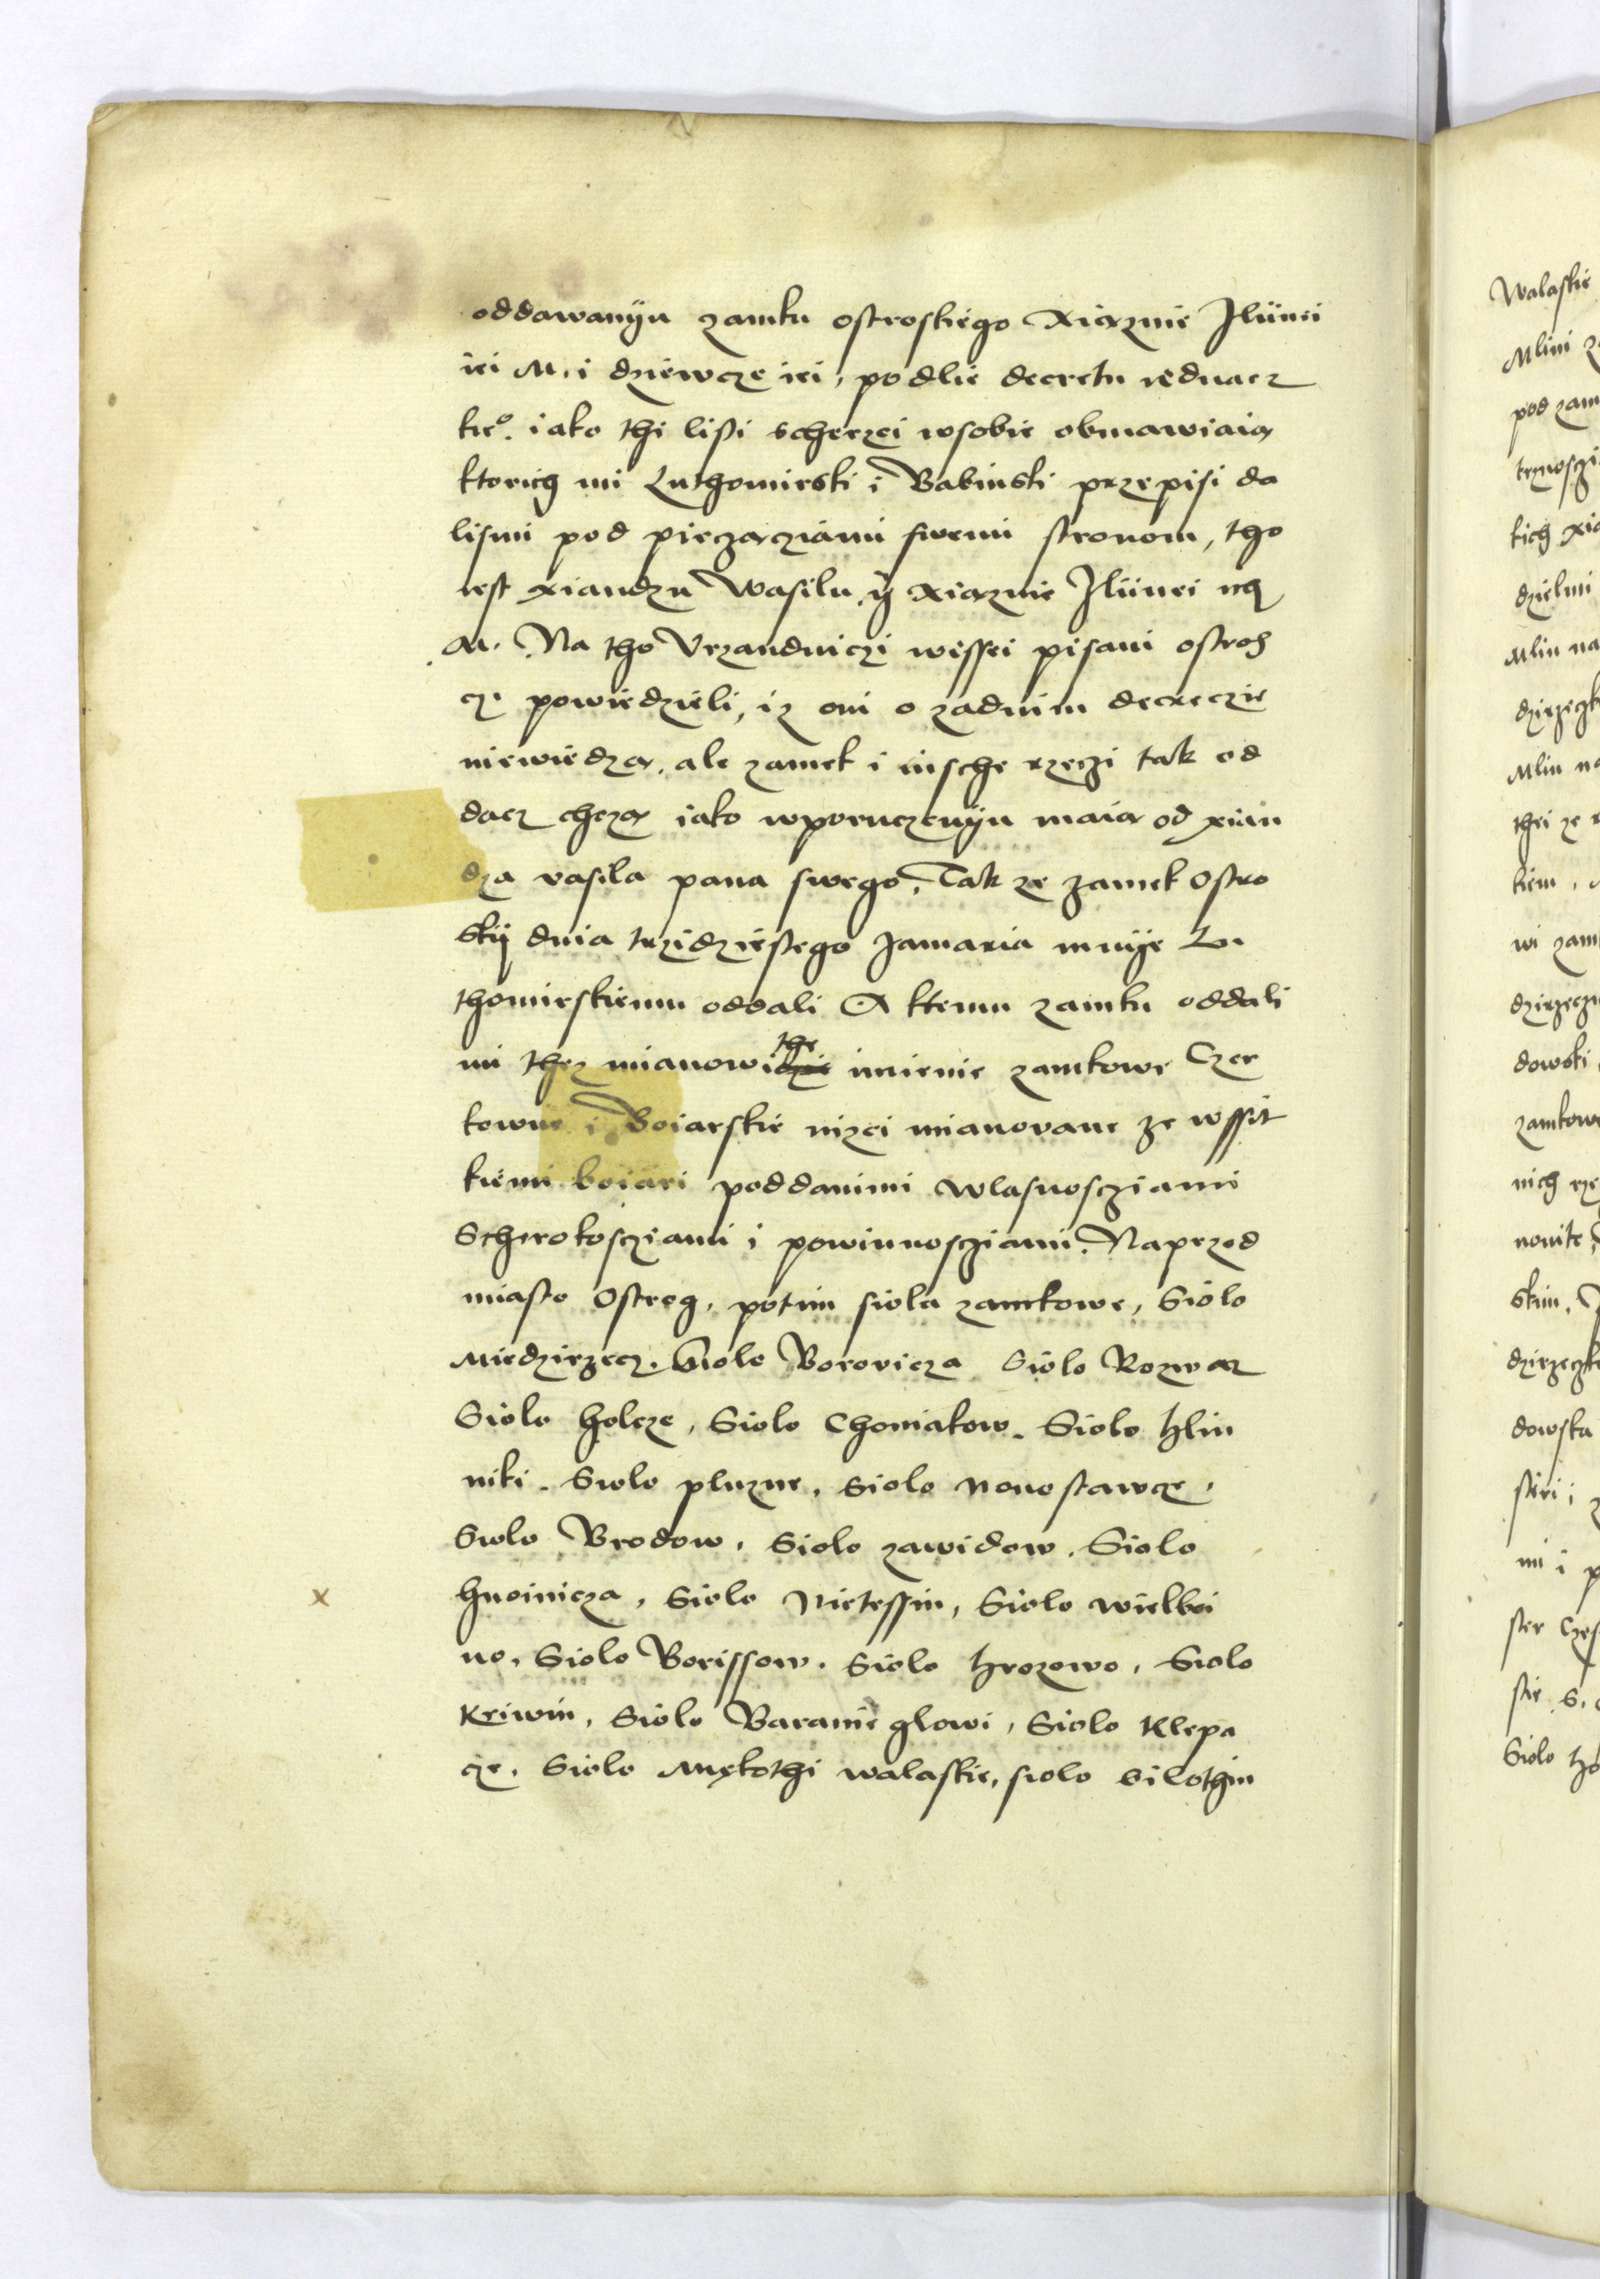 oddawanÿu zamku ostroskiego Xiąznie Ilÿnei
iei M. i dziewcze iei, podlie decretu iednacz
kie⁰. iako thi listi scherzei wsobie obmawiaią
ktorich mi Luthomirski i Babinski przepisi da
lismi pod pieczącziami swemi stronom, tho
iest xiandzu Wasilu ÿ Xiąznie Ilÿnei ich
M. Na tho Vrzandniczi wissei pisani ostroh
czi powiedzieli, iz oni o zadnim decreczie
niewiedzą, ale zamek i insche rzeczi tak od
dacz chczą iako wporuczenÿu maią od xian
dza vasila pana swego. Tak ze zamek Ostro
skÿ dnia trzidziestego Januaria mnÿe Lu
thomirskiemu oddali A ktemu zamku oddali
mi thez mianowithe imienie zamkowe Czer
kowne i Boiarskie nizei mianovane ze wssit
kiemi boiari poddanimi wlasnoscziami
Scherokoscziami i powinnoscziami. Naprzod
miasto Ostrog, potim siola zamkowe, Siolo
Miedzirzecz. Siolo Borovicza Siolo Rozwaz
Siolo holcze, Siolo Choniakow. Siolo Hlin
niki. Siolo pluzne, Siolo novostawcze,
Siolo Brodow, Siolo zawidow. Siolo
x hnoinicza, Siolo Nietessin, Siolo wielboi
no, Siolo Borissow. Siolo Hrozowo, Siolo
Kriwin, Siolo Baranie glowi, Siolo Klepa
cze, Siolo Mękothi walaskie, siolo Silothin
Walaskie
Mlini
pod zam
kich
dzielmi
Mlin na
Mlin
thei ze
kiem,
wi zam
dowski
zamkow
nich
skim.
dowska
mi i
Siolo